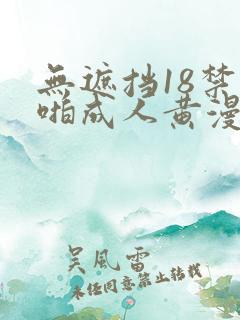 無遮挡18禁
啪成人黄漫
吴風雷
未经同意禁止转载